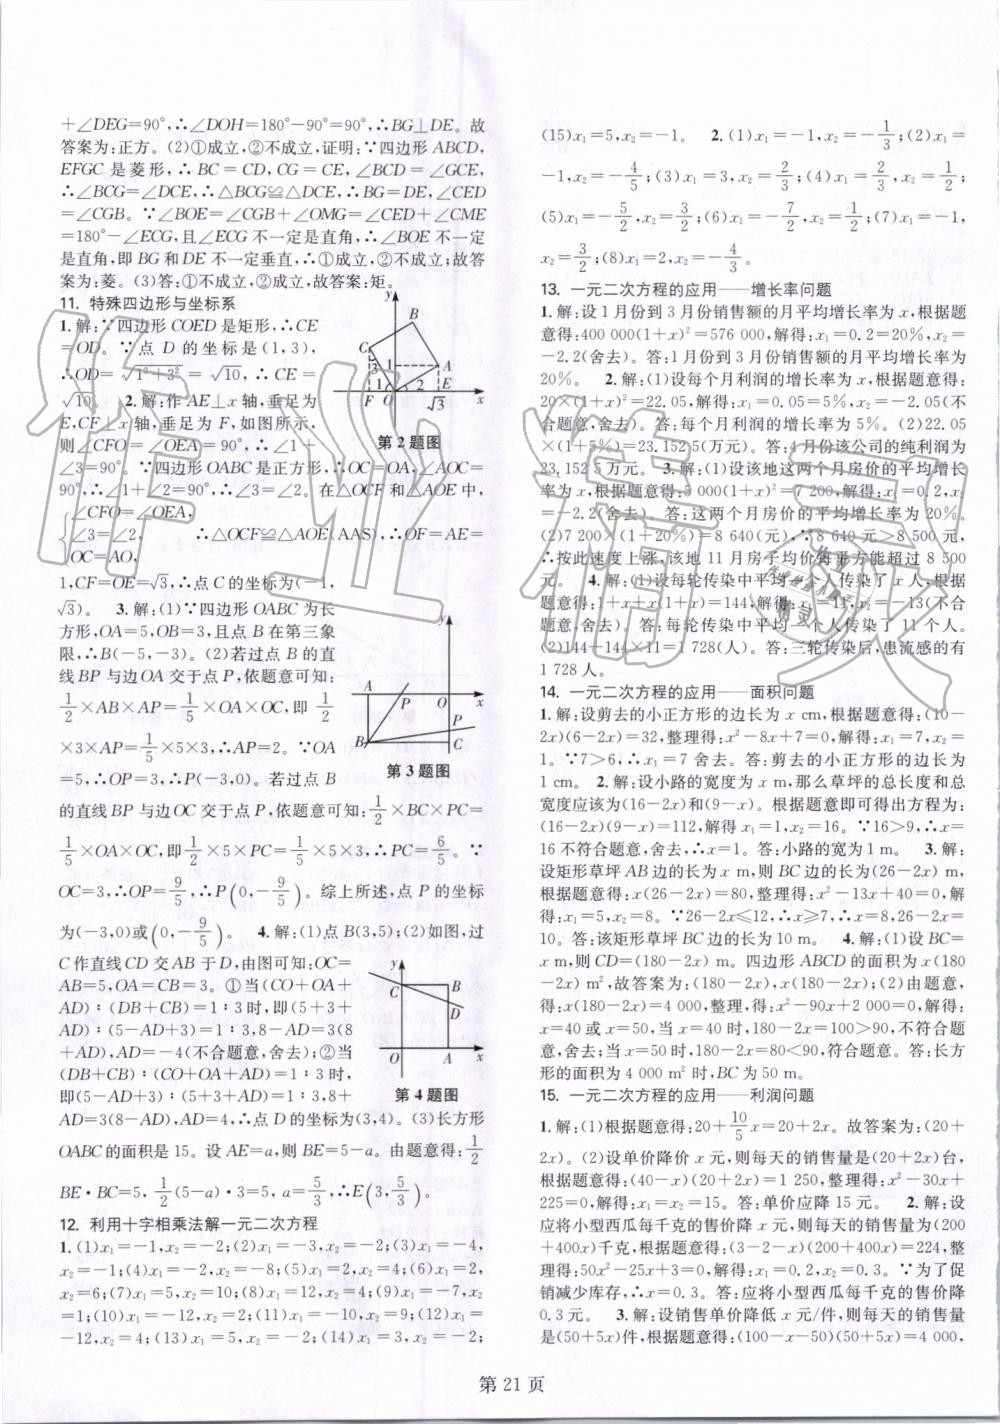 +∠DEG=90°,∴∠DOH=180°-90°=90°,∴BG⊥DE。故
答案为:正方。(2)①成立,②不成立,证明:∵四边形ABCD,
EFGC是菱形,∴BC=CD,CG=CE,∠BCD=∠GCE,
∴∠BCG=∠DCE,∴△BCG≌△DCE,∴BG=DE,∠CED
=∠CGB。∵∠BOE=∠CGB+∠OMG=∠CED+∠CME
=180°-∠ECG,且∠ECG不一定是直角,∴∠BOE不一定
是直角,即BG和DE不一定垂直,∴①成立,②不成立;故答
案为:菱。(3)答:①不成立,②成立,故答案:矩。
11. 特殊四边形与坐标系
1.解:∵四边形COED是矩形,∴CE
=OD。∵点D的坐标是(1,3),
∴OD=√(1²+3²)=√10,∴CE=
√10。 2.解:作AE⊥x轴,垂足为
E,CF⊥x轴,垂足为F,如图所示,
则∠CFO=∠OEA=90°,∴∠1+
∠3=90°。∵四边形OABC是正方形,∴OC=OA,∠AOC=
90°,∴∠1+∠2=90°,∴∠3=∠2。在△OCF和△AOE中,
{∠CFO=∠OEA,
∠3=∠2, ∴△OCF≌△AOE(AAS),∴OF=AE=
OC=AO,
1,CF=OE=√3,∴点C的坐标为(-1,
√3)。 3.解:(1)∵四边形OABC为长
方形,OA=5,OB=3,且点B在第三象
限,∴B(-5,-3)。(2)若过点B的直
线BP与边OA交于点P,依题意可知:
1/2×AB×AP=1/5×OA×OC,即1/2
×3×AP=1/5×5×3,∴AP=2。∵OA
=5,∴OP=3,∴P(-3,0)。若过点B
的直线BP与边OC交于点P,依题意可知:1/2×BC×PC=
1/5×OA×OC,即1/2×5×PC=1/5×5×3,∴PC=6/5。∵
OC=3,∴OP=9/5,∴P(0,-9/5)。综上所述,点P的坐标
为(-3,0)或(0,-9/5)。 4.解:(1)点B(3,5);(2)如图,过
C作直线CD交AB于D,由图可知:OC=
AB=5,OA=CB=3。①当(CO+OA+
AD):(DB+CB)=1:3时,即(5+3+
AD):(5-AD+3)=1:3,8-AD=3(8
+AD),AD=-4(不合题意,舍去);②当
(DB+CB):(CO+OA+AD)=1:3时,
即(5-AD+3):(5+3+AD)=1:3,8+
AD=3(8-AD),AD=4,∴点D的坐标为(3,4)。(3)长方形
OABC的面积是15。设AE=a,则BE=5-a。由题意得:1/2
BE·BC=5,1/2(5-a)·3=5,a=5/3,∴E(3,5/3)。
12. 利用十字相乘法解一元二次方程
1.(1)x₁=-1,x₂=-2;(2)x₁=1,x₂=2;(3)x₁=-4,
x₂=-1;(4)x₁=-2,x₂=-8;(5)x₁=2,x₂=4;(6)x₁=2,
x₂=6;(7)x₁=5,x₂=10;(8)x₁=12,x₂=4;(9)x₁=-7,
x₂=4;(10)x₁=-12,x₂=2;(11)x₁=-10,x₂=9;(12)x₁=
-12,x₂=4;(13)x₁=12,x₂=-2;(14)x₁=3,x₂=-2;
y
B
C
A
3
1
1
2
F
O
E
√3
x
第2题图
y
A
P
O
x
P
B
C
第3题图
y
C
B
D
O
A
x
第4题图
(15)x₁=5,x₂=-1。 2.(1)x₁=-1,x₂=-1/3;(2)x₁=
-1,x₂=-4/5;(3)x₁=2/3,x₂=2/3;(4)x₁=1/2,x₂=1/2;
(5)x₁=-5/2,x₂=2/3;(6)x₁=-7/2,x₂=1/2;(7)x₁=-1,
x₂=3/2;(8)x₁=2,x₂=-4/3。
13. 一元二次方程的应用——增长率问题
1.解:设1月份到3月份销售额的月平均增长率为x,根据题
意得:400 000(1+x)²=576 000,解得:x₁=0.2=20%,x₂=
-2.2(舍去)。答:1月份到3月份销售额的月平均增长率为
20%。 2.解:(1)设每个月利润的增长率为x,根据题意得:
20×(1+x)²=22.05,解得:x₁=0.05=5%,x₂=-2.05(不
合题意,舍去)。答:每个月利润的增长率为5%。(2)22.05
×(1+5%)=23.152 5(万元)。答:4月份该公司的纯利润为
23.152 5万元。 3.解:(1)设该地这两个月房价的平均增长
率为x,根据题意得:5 000(1+x)²=7 200,解得:x₁=0.2,x₂=
-2.2(舍去)。答:这两个月房价的平均增长率为20%。
(2)7 200×(1+20%)=8 640(元),∵8 640元>8 500元,
∴按此速度上涨,该地11月房子均价每平方能超过8 500
元。 4.解:(1)设每轮传染中平均一个人传染了x人,根据
题意得:1+x+x(x+1)=144,解得:x₁=11,x₂=-13(不合
题意,舍去)。答:每轮传染中平均一个人传染了11个人。
(2)144+144×11=1 728(人)。答:三轮传染后,患流感的有
1 728人。
14. 一元二次方程的应用——面积问题
1.解:设剪去的小正方形的边长为x cm,根据题意得:(10-
2x)(6-2x)=32,整理得:x²-8x+7=0,解得:x₁=7,x₂=
1。∵7>6,∴x=1。答:剪去的小正方形的边长为
1 cm。 2.解:设小路的宽度为x m,那么草坪的总长度和总
宽度应该为(16-2x)和(9-x)。根据题意即可得出方程为:
(16-2x)(9-x)=112,解得x₁=1,x₂=16。∵16>9,∴x=
16不符合题意,舍去,∴x=1。答:小路的宽为1 m。 3.解:
设矩形草坪AB边的长为x m,则BC边的长为(26-2x) m,
根据题意得:x(26-2x)=80,整理得:x²-13x+40=0,解
得:x₁=5,x₂=8。∵26-2x≤12,∴x≥7,∴x=8,26-2x=
10。答:该矩形草坪BC边的长为10 m。 4.解:(1)设BC=
x m,则CD=(180-2x) m。四边形ABCD的面积为x(180
-2x) m²,故答案为:(180-2x);x(180-2x);(2)由题意,
得:x(180-2x)=4 000,整理,得:x²-90x+2 000=0,解得:
x=40或x=50,当x=40时,180-2x=100>90,不符合题
意,舍去;当x=50时,180-2x=80<90,符合题意。答:长方
形的面积为4 000 m²时,BC为50 m。
15. 一元二次方程的应用——利润问题
1.解:(1)根据题意得:20+10/5x=20+2x。故答案为:(20+
2x)。(2)设单价降价x元,则每天的销售量是(20+2x)台,
根据题意得:(40-x)(20+2x)=1 250,整理得:x²-30x+
225=0,解得:x₁=x₂=15。答:单价应降15元。 2.解:设
应将小型西瓜每千克的售价降x元,则每天的销售量为(200
+400x)千克,根据题意得:(3-2-x)(200+400x)=224,整
理得:50x²-25x+3=0,解得:x₁=0.2,x₂=0.3。∵为了促
销减少库存,∴x=0.3。答:应将小型西瓜每千克的售价降
0.3元。 3.解:设销售单价降低x元/件,则每天的销售量
是(50+5x)件,根据题意得:(100-x-50)(50+5x)=4 000,
第21页
作业精灵